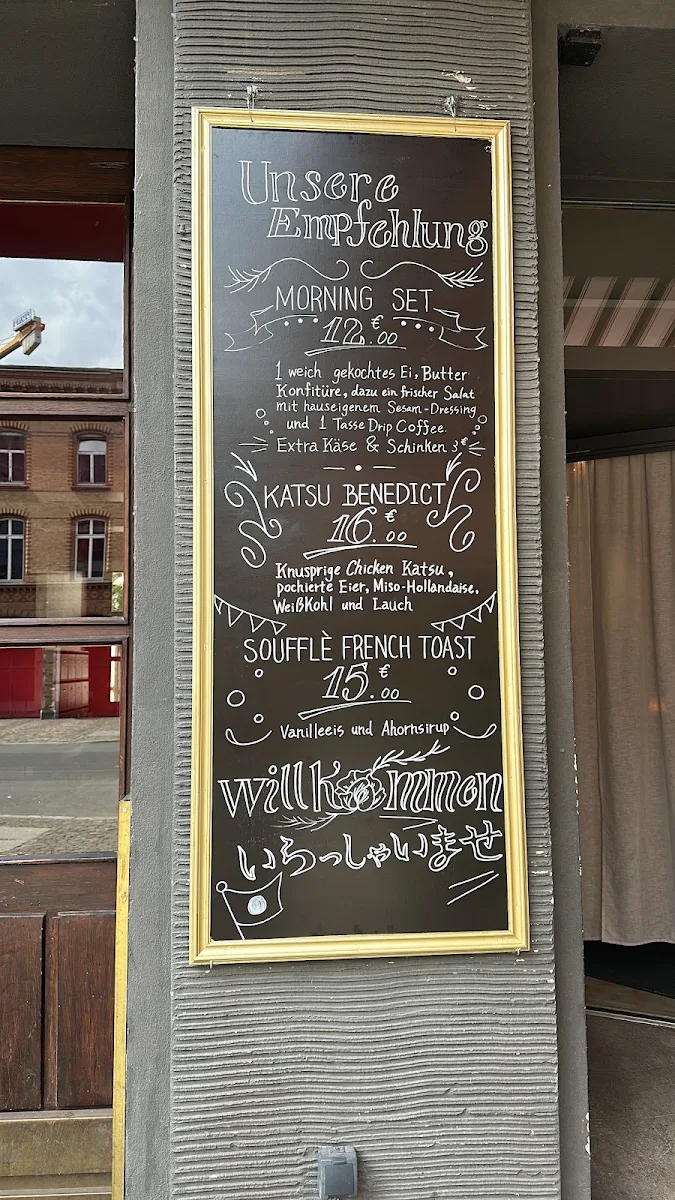 Unsere
Empfehlung
MORNING SET
12.00 €
1 weich gekochtes Ei, Butter
Konfitüre, dazu ein frischer Salat
mit hauseigenem Sesam-Dressing
und 1 Tasse Drip Coffee.
Extra Käse & Schinken 3€
KATSU BENEDICT
16.00 €
Knusprige Chicken Katsu,
pochierte Eier, Miso-Hollandaise,
Weißkohl und Lauch
SOUFFLÈ FRENCH TOAST
15.00 €
Vanilleeis und Ahornsirup
Willkommen
いらっしゃいませ